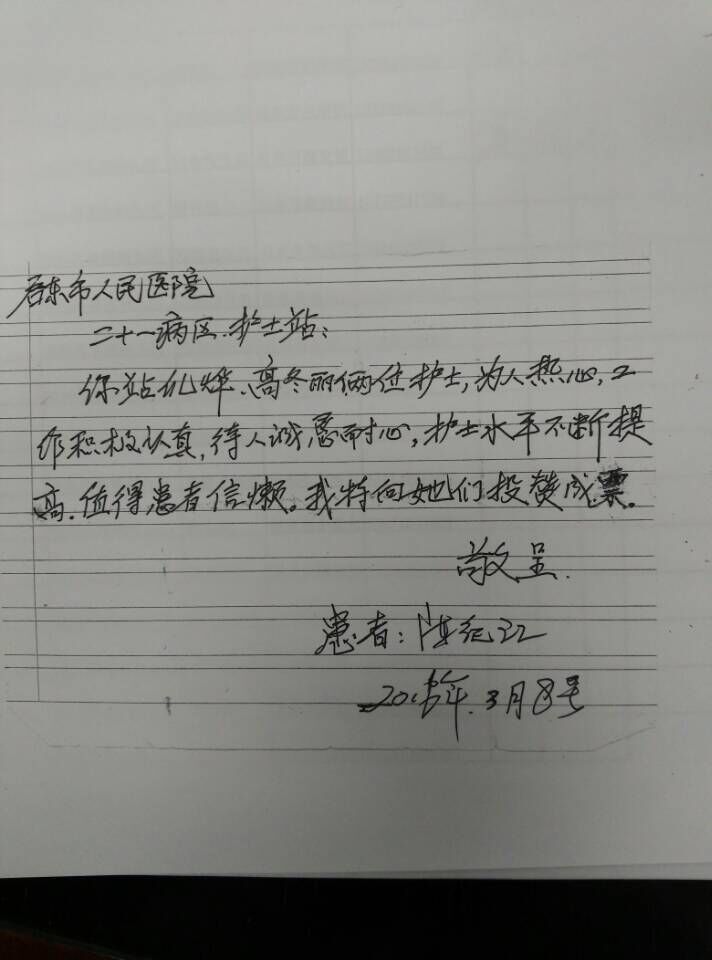 启东市人民医院
二十一病区.护士站:
你站 烨.高冬丽俩位护士,为人热心,工
作积极认真,待人诚恳耐心,护士水平不断提
高.值得患者信懒。我特向她们投赞成票。
敬呈.
患者:陈纪江
年.3月8号